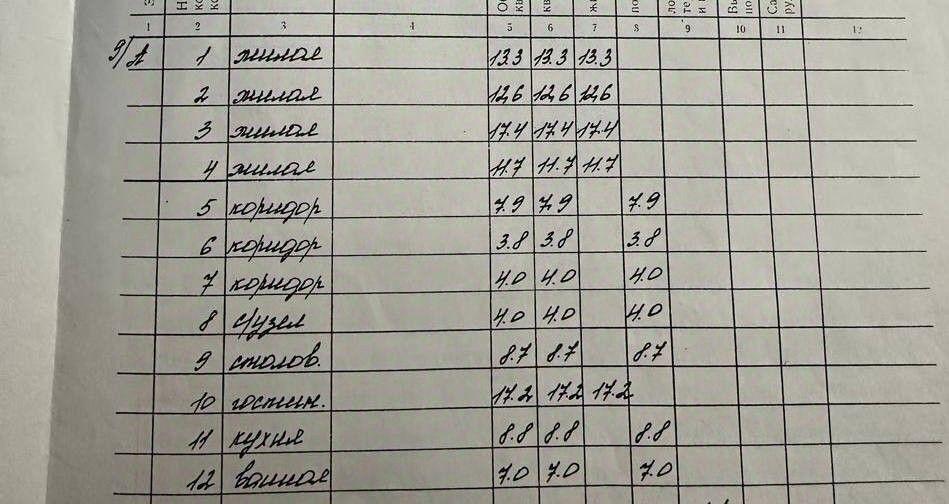 1 2 3 4 5 6 7 8 9 10 11 12
А 1 жилая 13.3 13.3 13.3
2 жилая 12,6 12,6 12,6
3 жилая 17.4 17.4 17.4
4 жилая 11.7 11.7 11.7
5 коридор 7.9 7,9 7.9
6 коридор 3.8 3.8 3.8
7 коридор 4.0 4.0 4.0
8 с/узел 4.0 4.0 4.0
9 столов. 8.7 8.7 8.7
10 гостин. 17.2 17.2 17.2
11 кухня 8.8 8.8 8.8
12 ванная 7.0 7.0 7.0